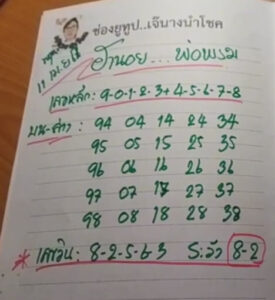 ช่องยูทูป..เจ๊นางนำโชค
ฮานอย...พ่อพรม
เลขหลัก: 9-0-1-2-3+4-5-6-7-8
บน-ล่าง: 94 04 14 24 34
95 05 15 25 35
96 06 16 26 36
97 07 17 27 37
98 08 18 28 38
* เลขวิน: 8-2-5-6-3 ระวัง 8-2